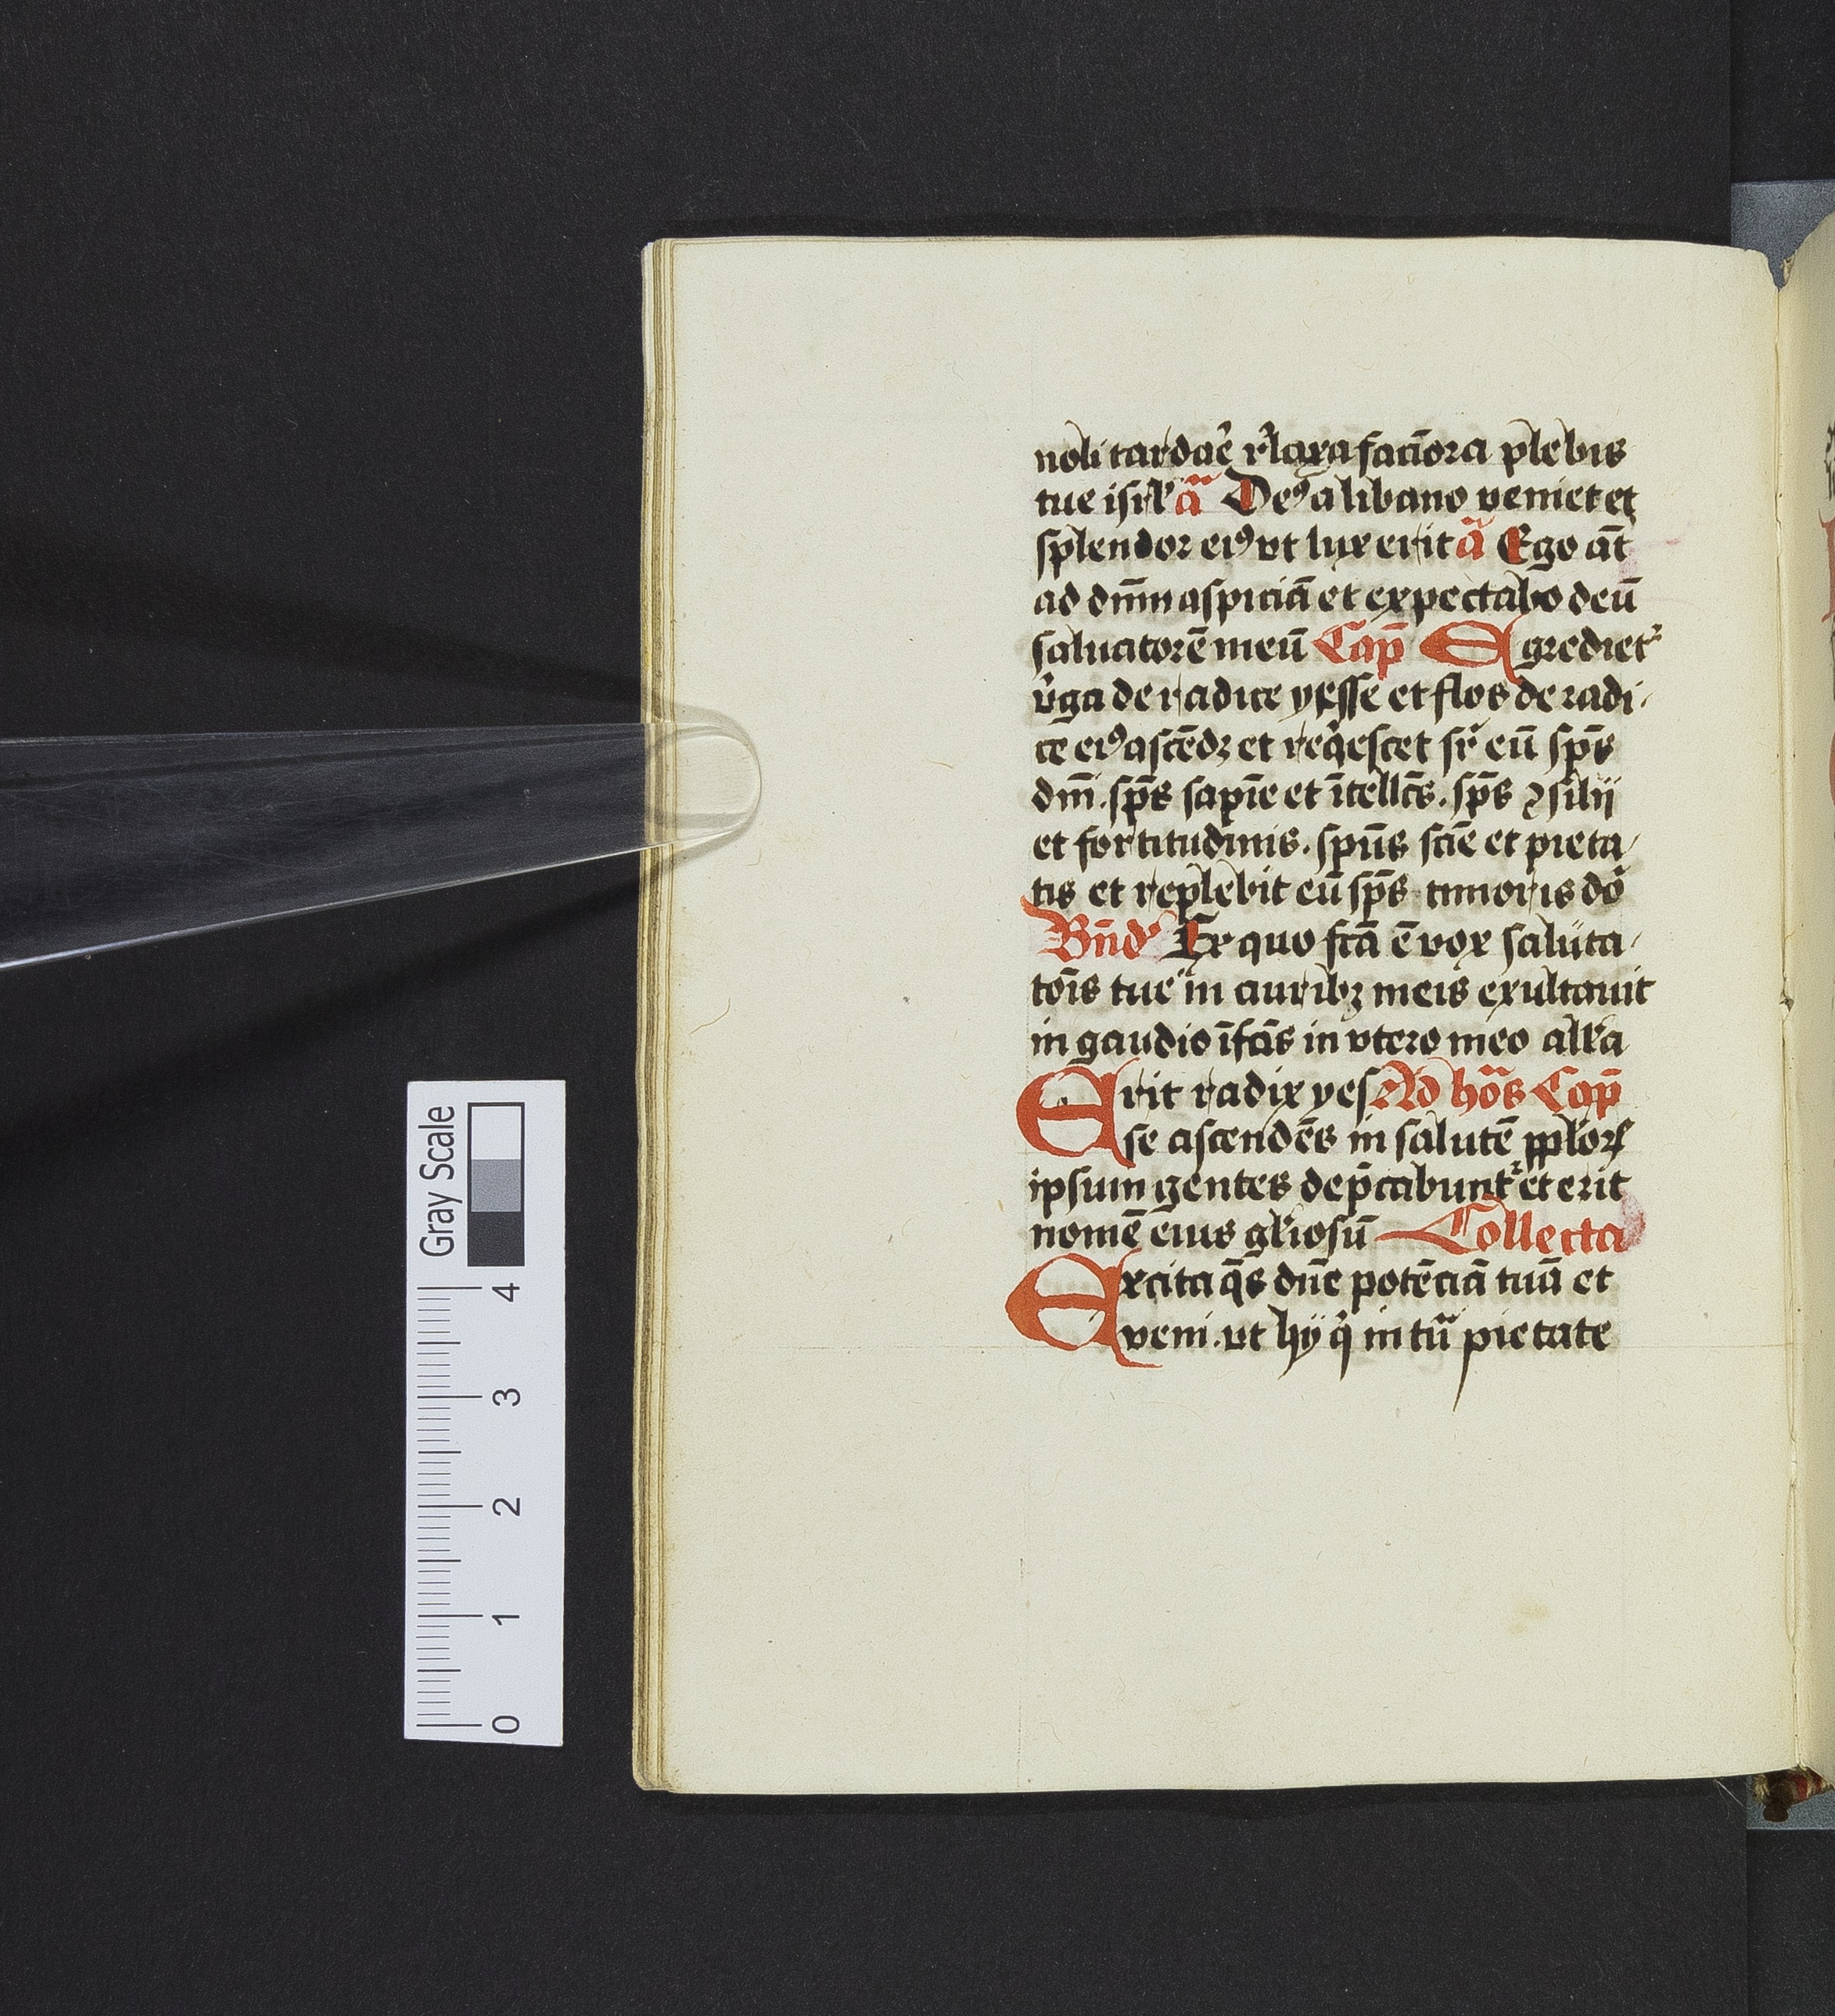 noli tardaꝛ̄ r̓laxa faciōra plebis
tue isrl̓ aᷓ Deꝰ a libano veniet et
splendor eiꝰ vt lux erit aᷓ Ego āt
ad dn̄m aspiciā et expectabo deū
saluatorē meū Cap̄ Egrediet᷑
v̓ga de radice yesse et flos de radi-
ce eiꝰ ascēdꝫ et req̇escet sr̄ eū sp̄s
dn̄i. sp̄s sapīe et ītellc̄s. sp̄s ꝯsilij
et fortitudinis. spūs scīe et pieta-
tis et replebit eū sp̄s timoris doᷓ
Bn̄d᷑ Ex quo fc̄ā ē vox saluta-
tōis tue in auribꝫ meis exultauit
in gaudio īfās in vtero meo all̓a
Erit radix yes Ad hoᷓs Cap̄
se ascendēs in salutē pplōꝝ
ipsum gentes dep̄cabunt᷑ et erit
nomē eius gl̓iosū Collecta
Excita q̄s dn̄e potēciā tuā et
veni. vt hij q̇ in tuᷓ pietate
Gray Scale
4
3
2
1
0